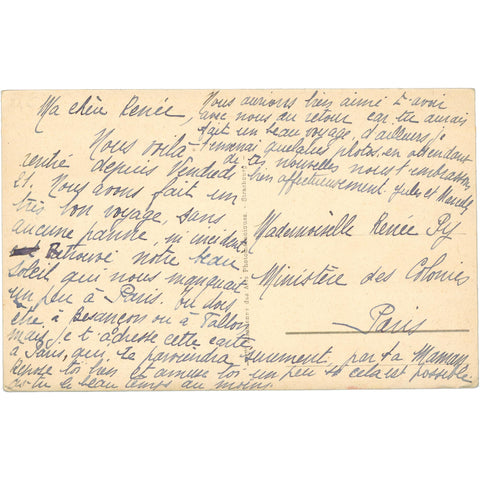 Ma chère Renée,
Nous voilà
rentré depuis Vendredi
21. Nous avons fait un
très bon voyage, sans
aucune panne, ni incident
Retrouvé notre beau
soleil qui nous manquait
un peu à Paris. Tu dois
être à Besançon ou à
mais je t'adresse cette carte
à Paris, qui te parviendra surement, par ta Maman
Repose toi bien et amuse toi un peu si cela est possible
as-tu le beau temps au moins.
Nous aurions bien aimé t'avoir
avec nous du retour car tu aurais
fait un beau voyage, d'ailleurs je
t'enverrai quelques photos, en attendant
de tes nouvelles nous t'embrassons
bien affectueusement. Jules et
Mademoiselle Renée Py
Ministère des Colonies
Paris
des Arts Strasbourg